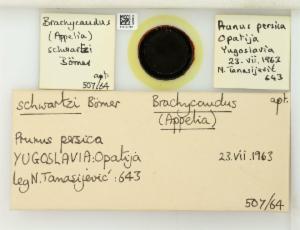 Brachycaudus
(Appelia)
schwartzi
Börner
apt.
507/64
Prunus persica
Opatija
Yugoslavia
23.vii.1963
N. Tanasijević
643
schwartzi Börner Brachycaudus apt.
(Appelia)
Prunus persica
YUGOSLAVIA: Opatija 23.vii.1963
leg N. Tanasijević: 643
507/64